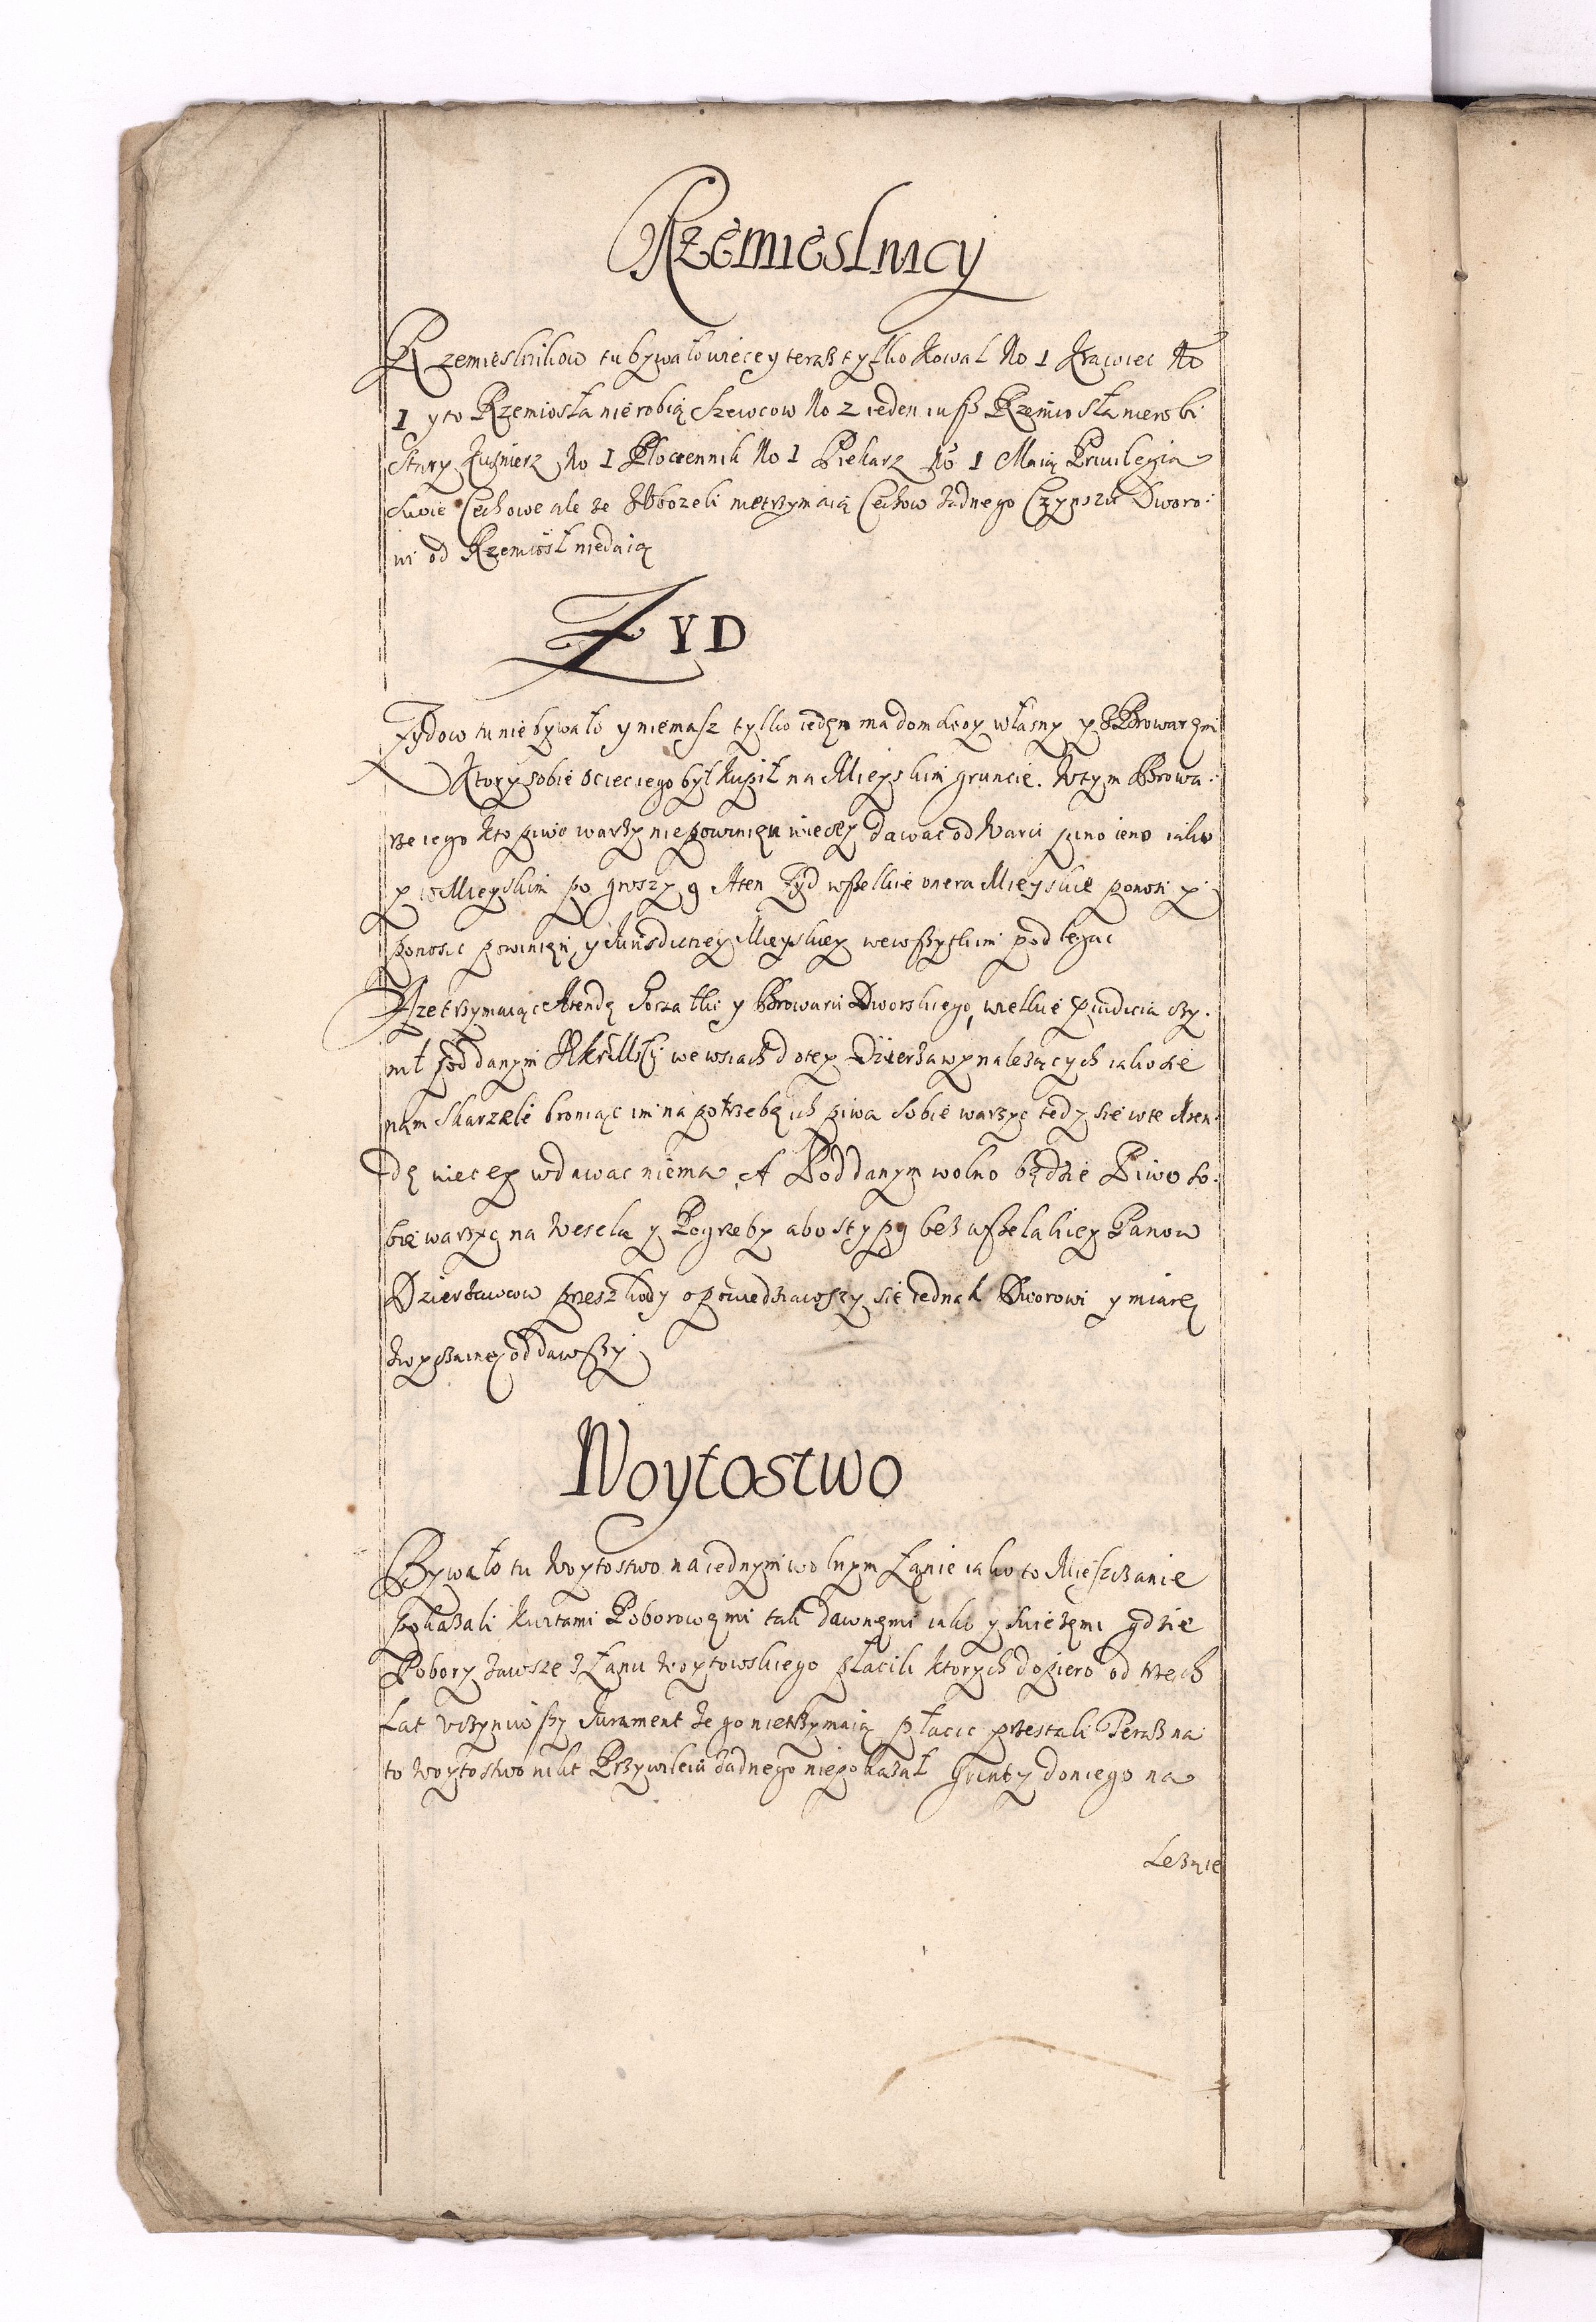 Rzemieslnicy
Rzemieslnikow tu bywało więcey teraz tylko Kowal No 1 Krawiec No
1 y to Rzemiosła nie robią Szewcow No 2 ieden iusz Rzemiosła nie robi
Stary Kusnierz No 1 Płociennik No 1 Piekarz No 1 Maią Priuilegia
swoie Cechowe ale ze Zbozeli nietrzymaią Cechow zadnego Czynszu Dworo:
wi od Rzemiosł niedaią
ZYD
Zydow tu nie bywało y niemasz tylko ieden ma dom swoy własny y z Browarem
Ktory sobie Ociec iego był kupił na Mieyskim gruncie. W tym Browa:
rze iego kto piwo warzy nie powinien więcey dawac od Waru ieno iako
y w Mieyskim po groszy 9 A ten Zyd wszelkie onera Mieyskie ponosi y
ponosic powinien, y Iurisdictiey Mieyskiey we wszytkim podlegac
A ze trzymaiąc Arendę Gorzałki y Browaru Dworskiego, wielkie praeiudicia czy:
nił poddanym J K Msci we wsiach do tey Dzierzawy nalezących iako sie
nam skarzeli broniąc im na potrzebę ich piwa sobie warzyc tedy sie w te Aren:
dę więcey wdawac niema, A Poddanym wolno będzie Piwo so:
bie warzyc na Wesela y Pogrzeby abo stypy bez wszelakiey Panow
Dzierzawcow przeszkody opowiedziawszy się iednak Dworowi y miarę
zwyczainą oddawszy
Woytostwo
Bywało tu Woytostwo na iednym wolnym Łanie iako to Mieszczanie
pokazali kwitami Poborowemi tak dawnemi iako y swiezemi gdzie
Pobory zawsze z Łanu Woytowskiego płacili ktorych dopiero od trzech
Lat vczyniwszy Iurament ze go nietrzymaią płacic przestali Teraz na
to Woytostwo nikt Przywileiu zadnego niepokazał Grunty do niego na
Lezące